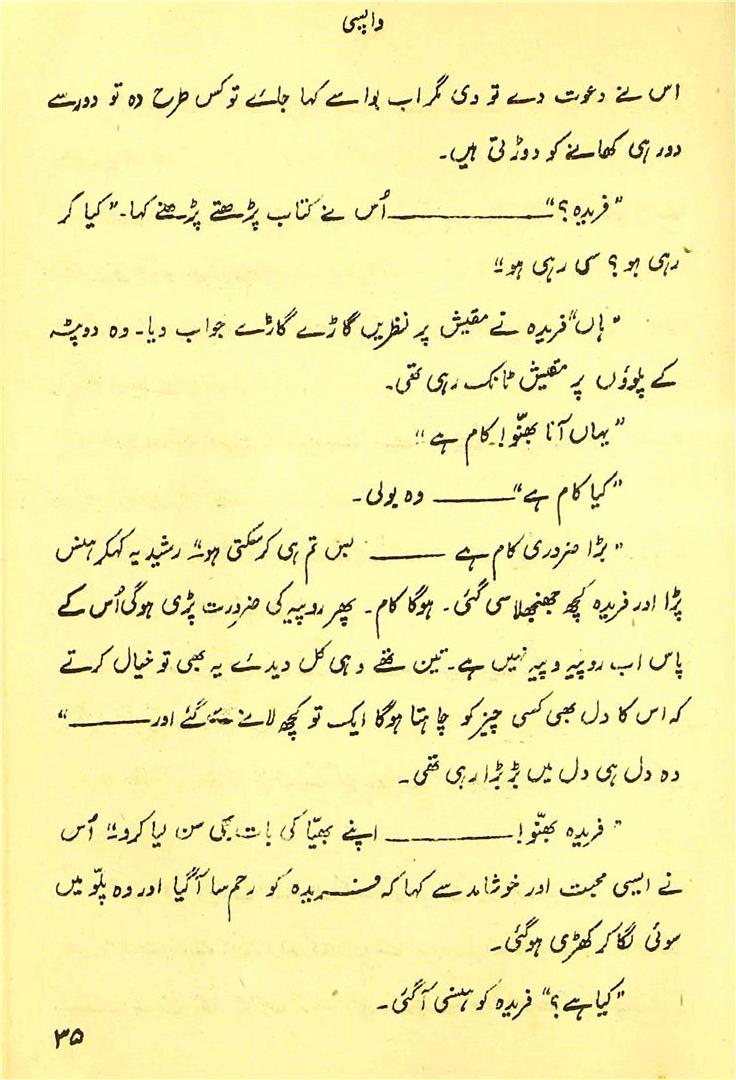 واپسی
اس نے دعوت دے تو دی مگر اب بوا سے کہا جائے تو کس طرح وہ تو دور سے
دور ہی کھانے کو دوڑتی ہیں۔
"فریدہ؟" ——— اُس نے کتاب پڑھتے پڑھتے کہا۔ "کیا کر
رہی ہو؟ سی رہی ہو"
"ہاں" فریدہ نے مقیش پر نظریں گاڑے گاڑے جواب دیا۔ وہ دوپٹہ
کے پلوؤں پر مقیش ٹانک رہی تھی۔
"یہاں آنا بھنّو! کام ہے"
"کیا کام ہے" ——— وہ بولی۔
"بڑا ضروری کام ہے ——— بس تم ہی کر سکتی ہو" رشید یہ کہکر ہنس
پڑا اور فریدہ کچھ جھنجھلا سی گئی۔ ہوگا کام۔ پھر روپیہ کی ضرورت پڑی ہوگی اُس کے
پاس اب روپیہ وپیہ نہیں ہے۔ تین تھے وہی کل دیدئے یہ بھی تو خیال کرتے
کہ اس کا دل بھی کسی چیز کو چاہتا ہوگا ایک تو کچھ لانے گئے اور ——— "
وہ دل ہی دل میں بڑبڑا رہی تھی۔
"فریدہ بھنّو! ——— اپنے بھیّا کی بات بھی سن لیا کرو" اُس
نے ایسی محبت اور خوشامد سے کہا کہ فریدہ کو رحم سا آگیا اور وہ پلّو میں
سوئی لگا کر کھڑی ہوگئی۔
"کیا ہے؟" فریدہ کو ہنسی آگئی۔
۳۵